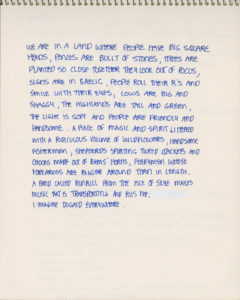 WE ARE IN A LAND WHERE PEOPLE HAVE BIG SQUARE
HEADS, FENCES ARE BUILT OF STONES, TREES ARE
PLANTED SO CLOSE TOGETHER THEY LOOK OUT OF FOCUS,
SIGNS ARE IN GAELIC, PEOPLE ROLL THEIR R'S AND
SMILE WITH THEIR EYES, COWS ARE BIG AND
SHAGGY, THE HIGHLANDS ARE TALL AND GREEN,
THE LIGHT IS SOFT AND PEOPLE ARE FRIENDLY AND
HANDSOME. A PLACE OF MAGIC AND SPIRIT LITTERED
WITH A RIDICULOUS VOLUME OF WILDFLOWERS, HANDSOME
FISHERMEN, SHEPHERDS SPORTING TWEED JACKETS AND
CROOKS MADE OUT OF RAMS' HORNS, FERRYMEN WHOSE
FOREARMS ARE BIGGER AROUND THAN IN LENGTH.
A BAND CALLED RUNRIG FROM THE ISLE OF SKYE MAKES
MUSIC THAT IS TRANSPORTING AND FILLS ME.
I IMAGINE DUGALD EVERYWHERE.